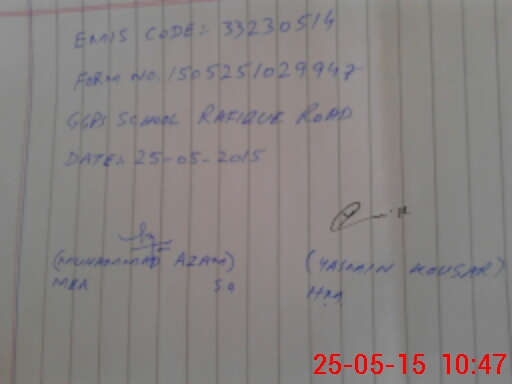 EMIS CODE: 33230514
FORM NO. 1505251029947
GGPS SCHOOL RAFIQUE ROAD
DATE: 25-05-2015
(MUHAMMAD AZAM) (YASMIN KOUSAR)
MEA HM
25-05-15 10:47